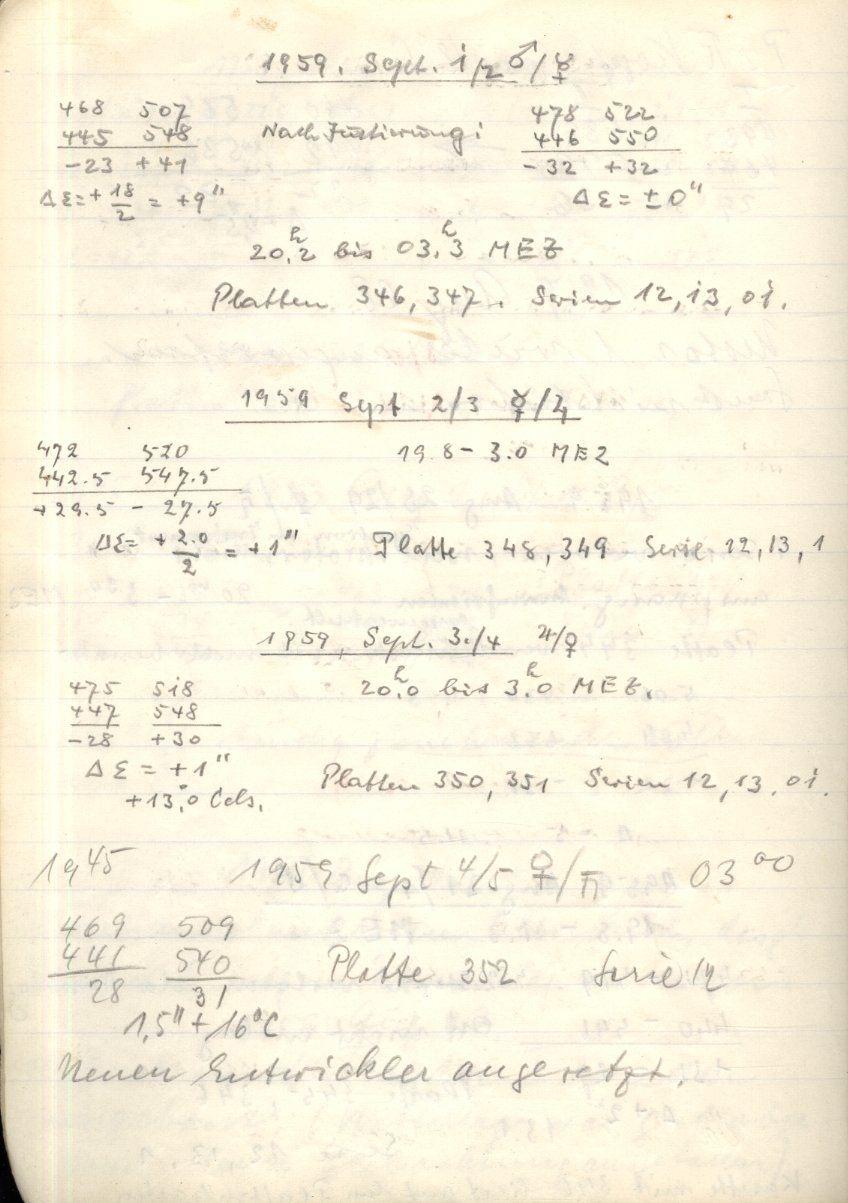 1959. Sept. 1/2 ♂/☿
468 507 478 522
445 548 Nach Justierung: 446 550
-23 +41 -32 +32
Δε=+18/2 = +9" Δε = ±0"
20.2ʰ bis 03.3ʰ MEZ
Platten 346, 347. Serien 12, 13, 01.
1959 Sept 2/3 ☿/♃
472 520 19.8 - 3.0 MEZ
442.5 547.5
+29.5 - 27.5
Δε= +2.0/2 = +1" Platte 348, 349 Serie 12, 13, 1
1959, Sept. 3./4 ♃/♀
475 518 20.0ʰ bis 3.0ʰ MEZ.
447 548
-28 +30
Δε = +1" Platten 350, 351 Serien 12, 13, 01.
+13.°0 Cels.
19⁴⁵ 1959 Sept 4/5 ♀/♄ 03⁰⁰
469 509
441 540 Platte 352 Serie 12
28 31
1,5" +16°C
Neuen Entwickler angesetzt.